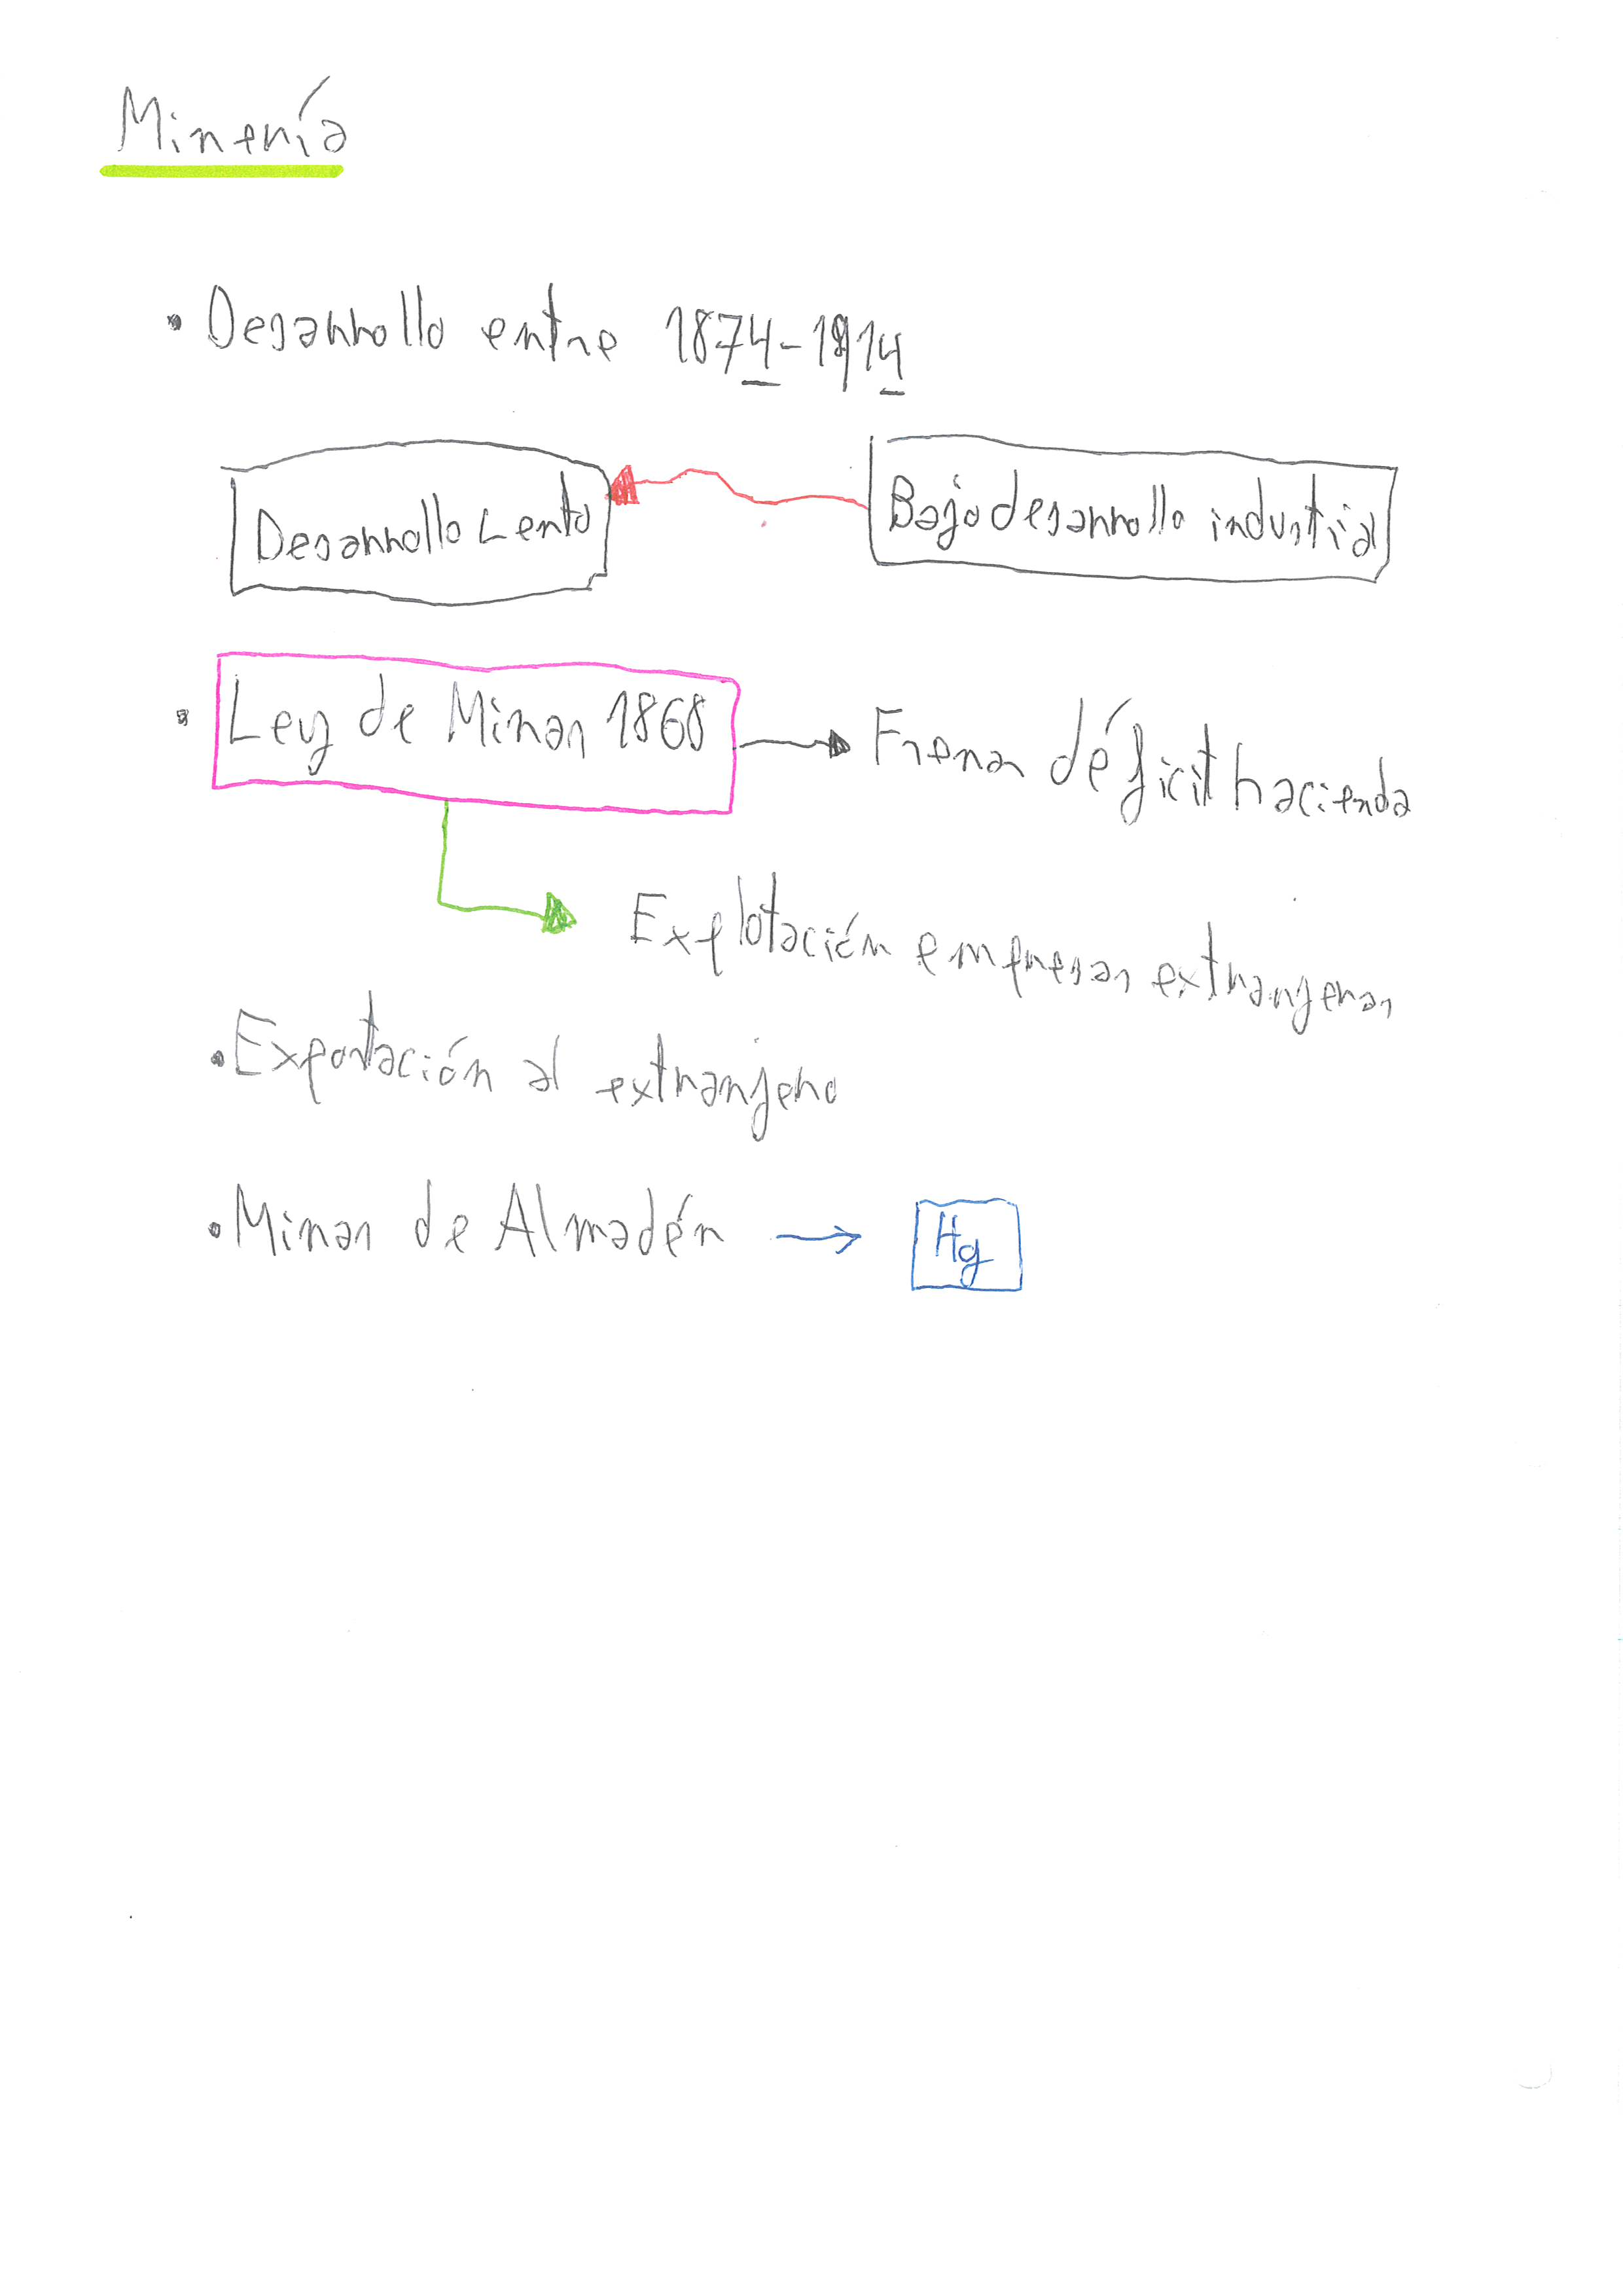 Minería
• Desarrollo entre 1874-1914
Desarrollo Lento
Bajo desarrollo industrial
• Ley de Minas 1868
Frenar déficit hacienda
Explotación empresas extrangeras
• Exportación al extranjero
• Minas de Almadén → Hg